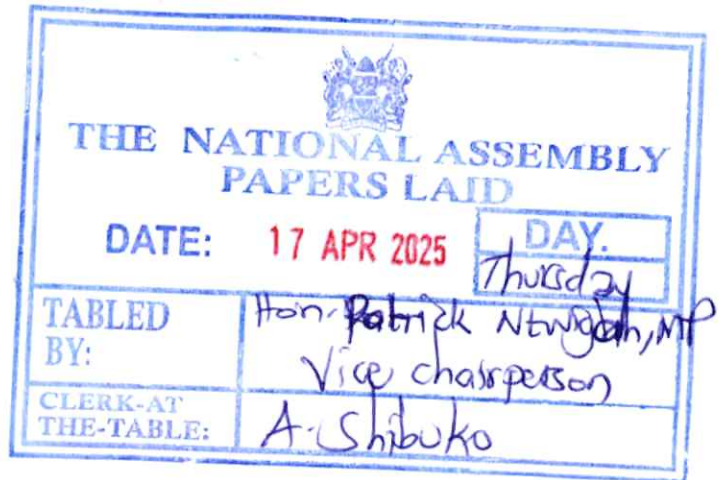 THE NATIONAL ASSEMBLY
PAPERS LAID
DATE: 17 APR 2025
DAY.
Thursday
TABLED BY:
Hon. Patrick
MP
Vice chairperson
CLERK-AT THE-TABLE:
A. Shibuko